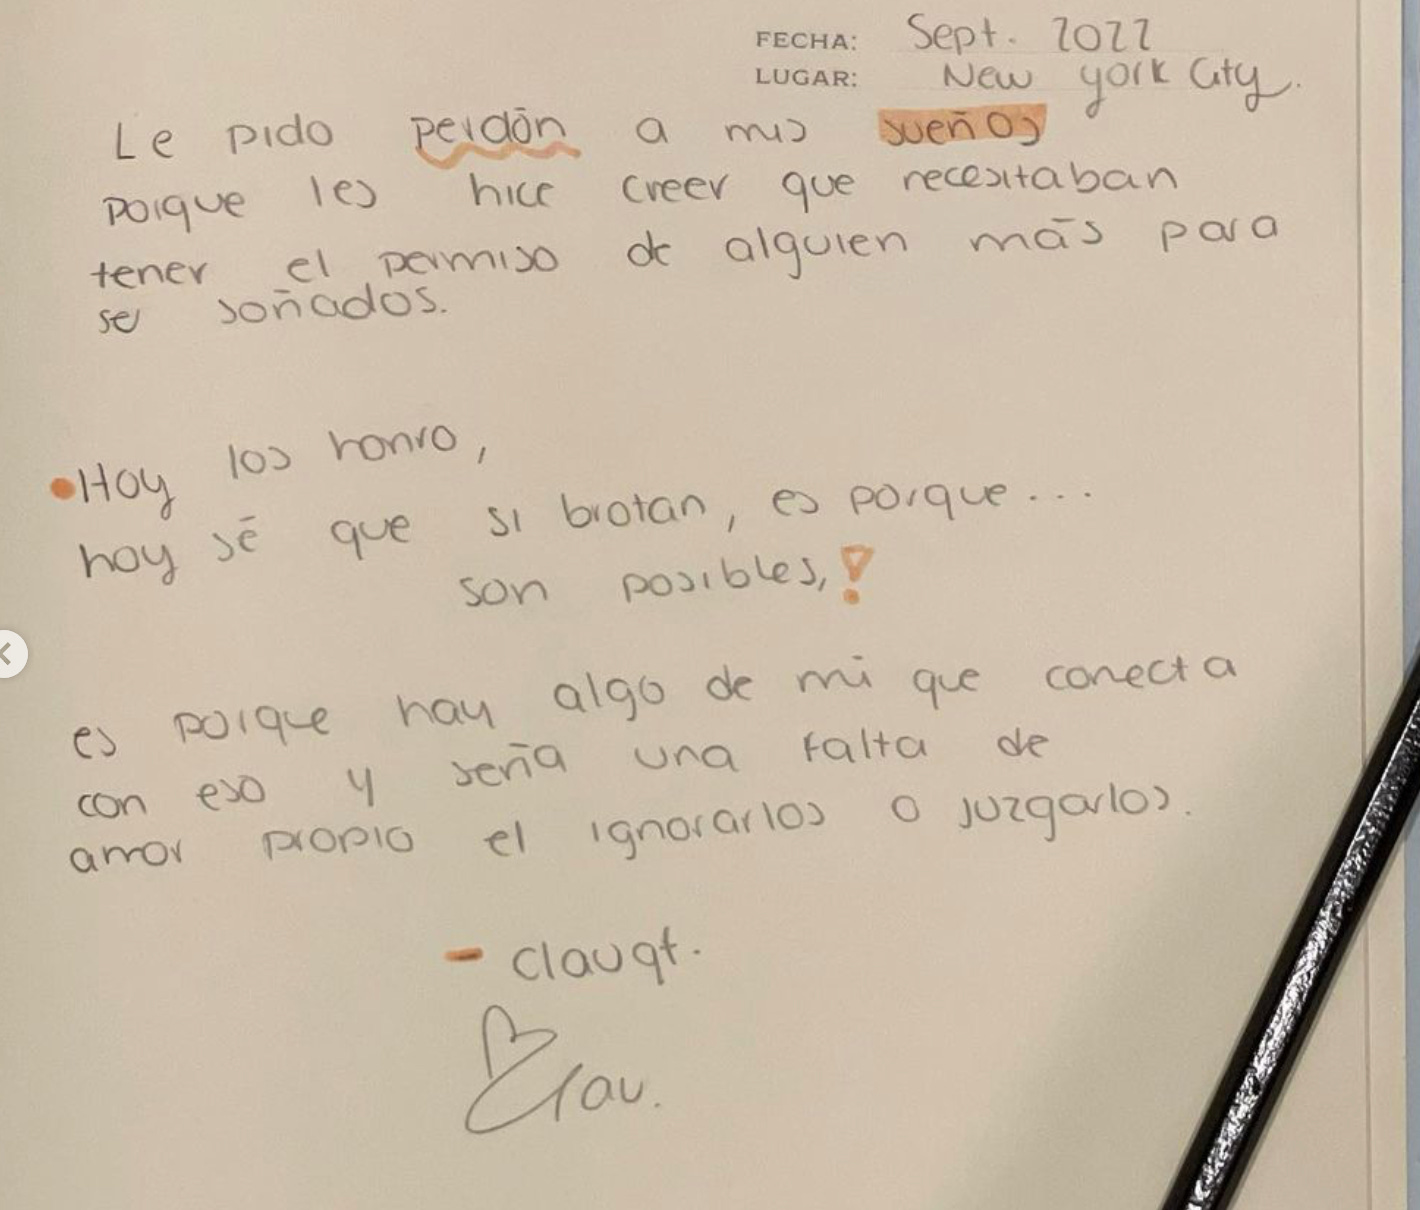 FECHA: Sept. 2022
LUGAR: New york City.
Le pido perdón a mis sueños
porque les hice creer que necesitaban
tener el permiso de alguien más para
ser soñados.
•Hoy los honro,
hoy sé que si brotan, es porque...
son posibles,!
es porque hay algo de mi que conecta
con eso y sería una falta de
amor propio el ignorarlos o juzgarlos.
- clauqt.
Clau.